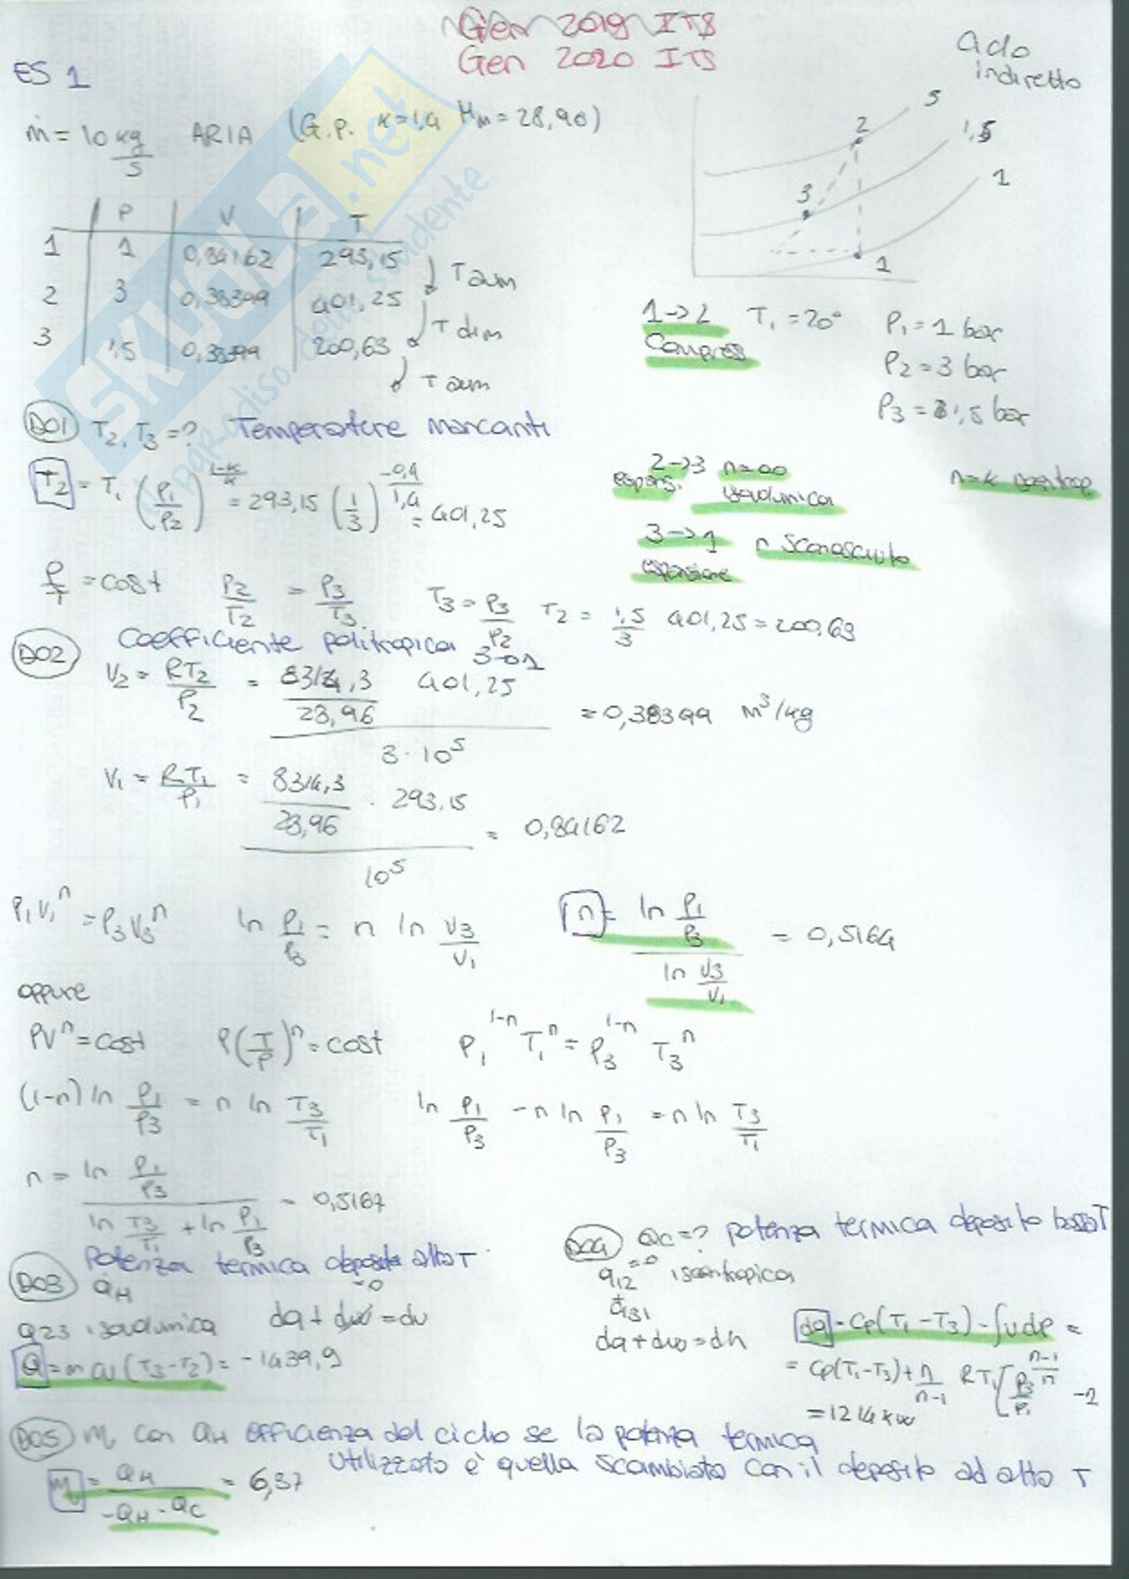 Gen 2019 ITS
Gen 2020 ITS
Ciclo
indiretto
ES 1
ṁ = 10 kg/s ARIA (G.P. K=1,4 Mm = 28,96)
P V T
1 1 0,84162 293,15
2 3 0,38399 401,25
3 1,5 0,38399 200,63
T aum
T dim
T aum
3
1,5
1
2
3
1
1->2 T1 = 20° P1 = 1 bar
Compress P2 = 3 bar
P3 = 1,5 bar
D01 T2, T3 = ? Temperature mancanti
T2 = T1 (P1/P2)^(1-k/k) = 293,15 (1/3)^(-0,4/1,4) = 401,25
2->3 n=∞ n=k isentrop
espans. isovolumica
3->1 n sconosciuto
espansione
P/T = cost P2/T2 = P3/T3 T3 = P3/P2 T2 = 1,5/3 401,25 = 200,63
D02 Coefficiente politropica 3->1
V2 = RT2/P2 = 8314,3/28,96 401,25 / 3·10^5 = 0,38399 m³/kg
V1 = RT1/P1 = 8314,3/28,96 · 293,15 / 10^5 = 0,84162
P1V1^n = P3V3^n ln P1/P3 = n ln V3/V1 n = ln P1/P3 / ln V3/V1 = 0,5164
oppure
PV^n = cost P(T/P)^n = cost P1^(1-n) T1^n = P3^(1-n) T3^n
(1-n) ln P1/P3 = n ln T3/T1 ln P1/P3 - n ln P1/P3 = n ln T3/T1
n = ln P1/P3 / ln T3/T1 + ln P1/P3 = 0,5167
Potenza termica deposito alto T
D03 QH
Q23 isovolumica dq + dw = du
=0
Q = m cv (T3-T2) = -1439,9
D04 Qc=? potenza termica deposito basso T
q12 =0 isentropica
+
q31
dq + dw = dh
dq = cp(T1-T3) - ∫vdp =
= cp(T1-T3) + n/n-1 RT1 [P3/P1^(n-1/n) -1
= 1214 kw
D05 η con QH efficienza del ciclo se la potenza termica
utilizzata è quella scambiata con il deposito ad alto T
η = QH / -QH - QC = 6,37